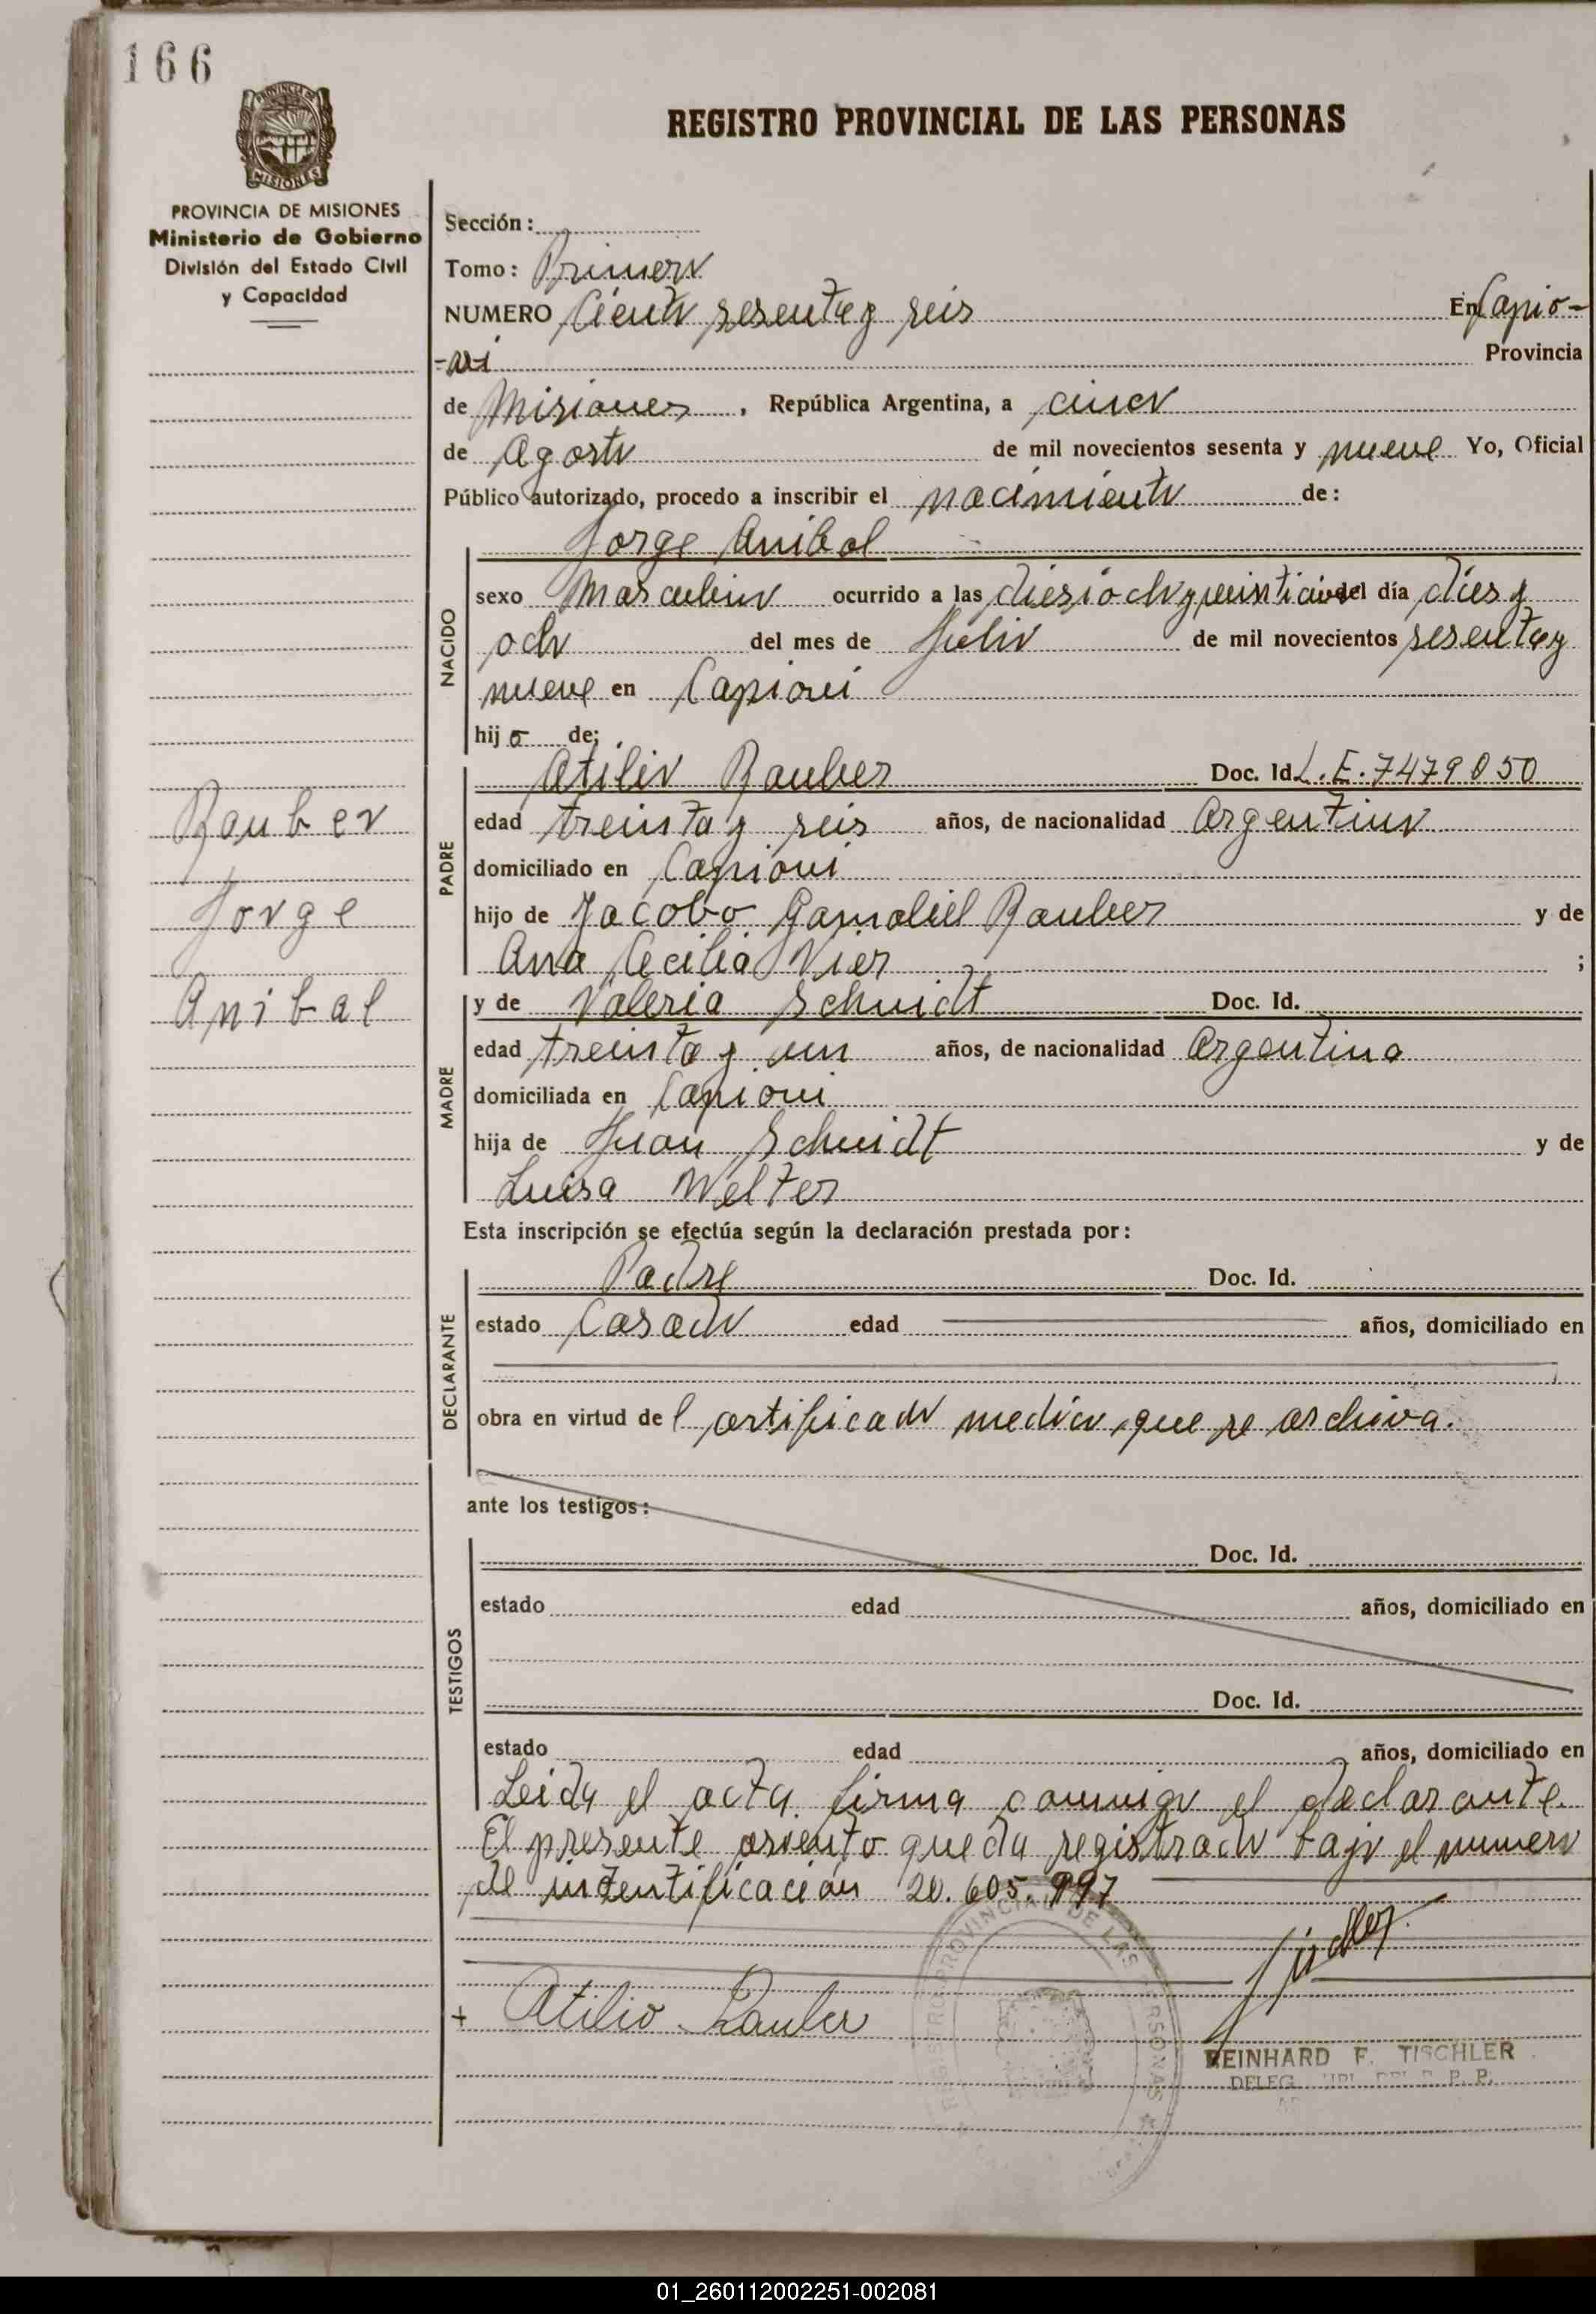 166
PROVINCIA DE MISIONES
MISIONES
PROVINCIA DE MISIONES
Ministerio de Gobierno
División del Estado Civil
y Capacidad
REGISTRO PROVINCIAL DE LAS PERSONAS
Sección:
Tomo: Primero
NUMERO Ciento sesenta y seis En Capio-
-vi Provincia
de Misiones, República Argentina, a cinco
de Agosto de mil novecientos sesenta y nueve Yo, Oficial
Público autorizado, procedo a inscribir el nacimiento de:
NACIDO
Jorge Anibal
sexo Masculino ocurrido a las diesiocho y veinticinco del día dies y
ocho del mes de Julio de mil novecientos sesenta y
nueve en Capiovi
hijo de;
PADRE
Atilio Rauber Doc. Id. L.E. 7479050
edad treinta y seis años, de nacionalidad Argentino
domiciliado en Capiovi
hijo de Jacobo Gamaliel Rauber y de
Ana Cecilia Vier ;
MADRE
y de Valeria Schmidt Doc. Id.
edad treinta y un años, de nacionalidad Argentina
domiciliada en Capiovi
hija de Juan Schmidt y de
Luisa Welter
Rauber
Jorge
Anibal
Esta inscripción se efectúa según la declaración prestada por:
DECLARANTE
Padre Doc. Id.
estado Casado edad años, domiciliado en
obra en virtud del certificado medico, que se archiva.
ante los testigos:
TESTIGOS
Doc. Id.
estado edad años, domiciliado en
Doc. Id.
estado edad años, domiciliado en
Leida el acta firma conmigo el declarante.
El presente asiento queda registrado bajo el numero
de intentificación 20.605.997
REGISTRO PROVINCIAL DE LAS PERSONAS
+ Atilio Rauber
REINHARD F. TISCHLER
DELEG. R. P. P.
01_260112002251-002081